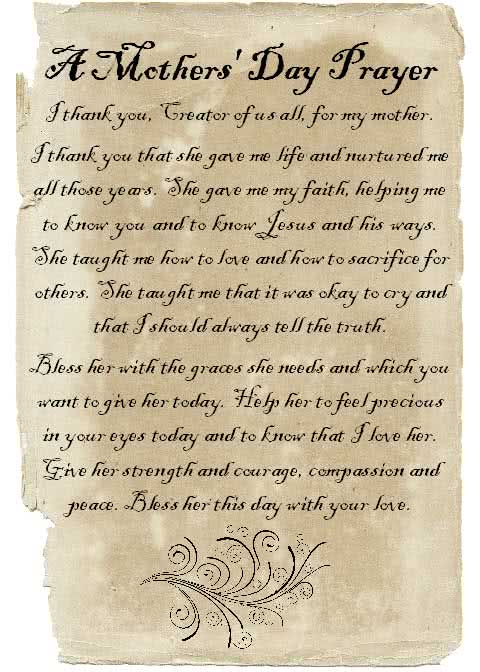 A Mothers' Day Prayer
I thank you, Creator of us all, for my mother.
I thank you that she gave me life and nurtured me
all those years. She gave me my faith, helping me
to know you and to know Jesus and his ways.
She taught me how to love and how to sacrifice for
others. She taught me that it was okay to cry and
that I should always tell the truth.
Bless her with the graces she needs and which you
want to give her today. Help her to feel precious
in your eyes today and to know that I love her.
Give her strength and courage, compassion and
peace. Bless her this day with your love.